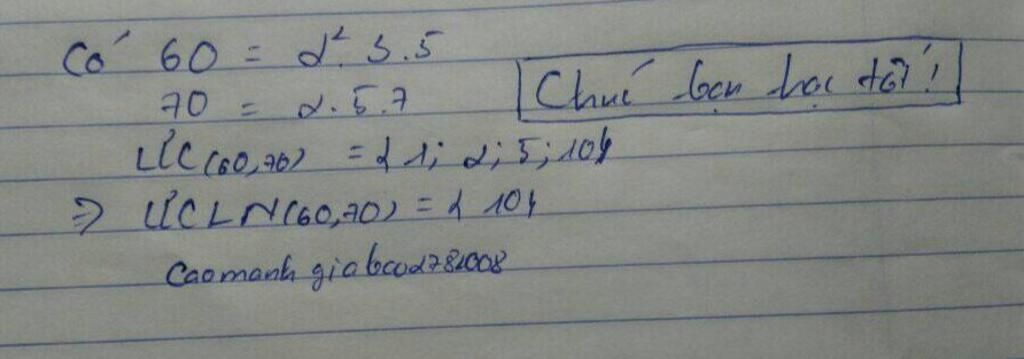 Có 60 = 2². 3.5
70 = 2.5.7
Chúc bạn học tốt!
ƯC(60,70) = {1; 2; 5; 10}
⇒ ƯCLN(60,70) = {10}